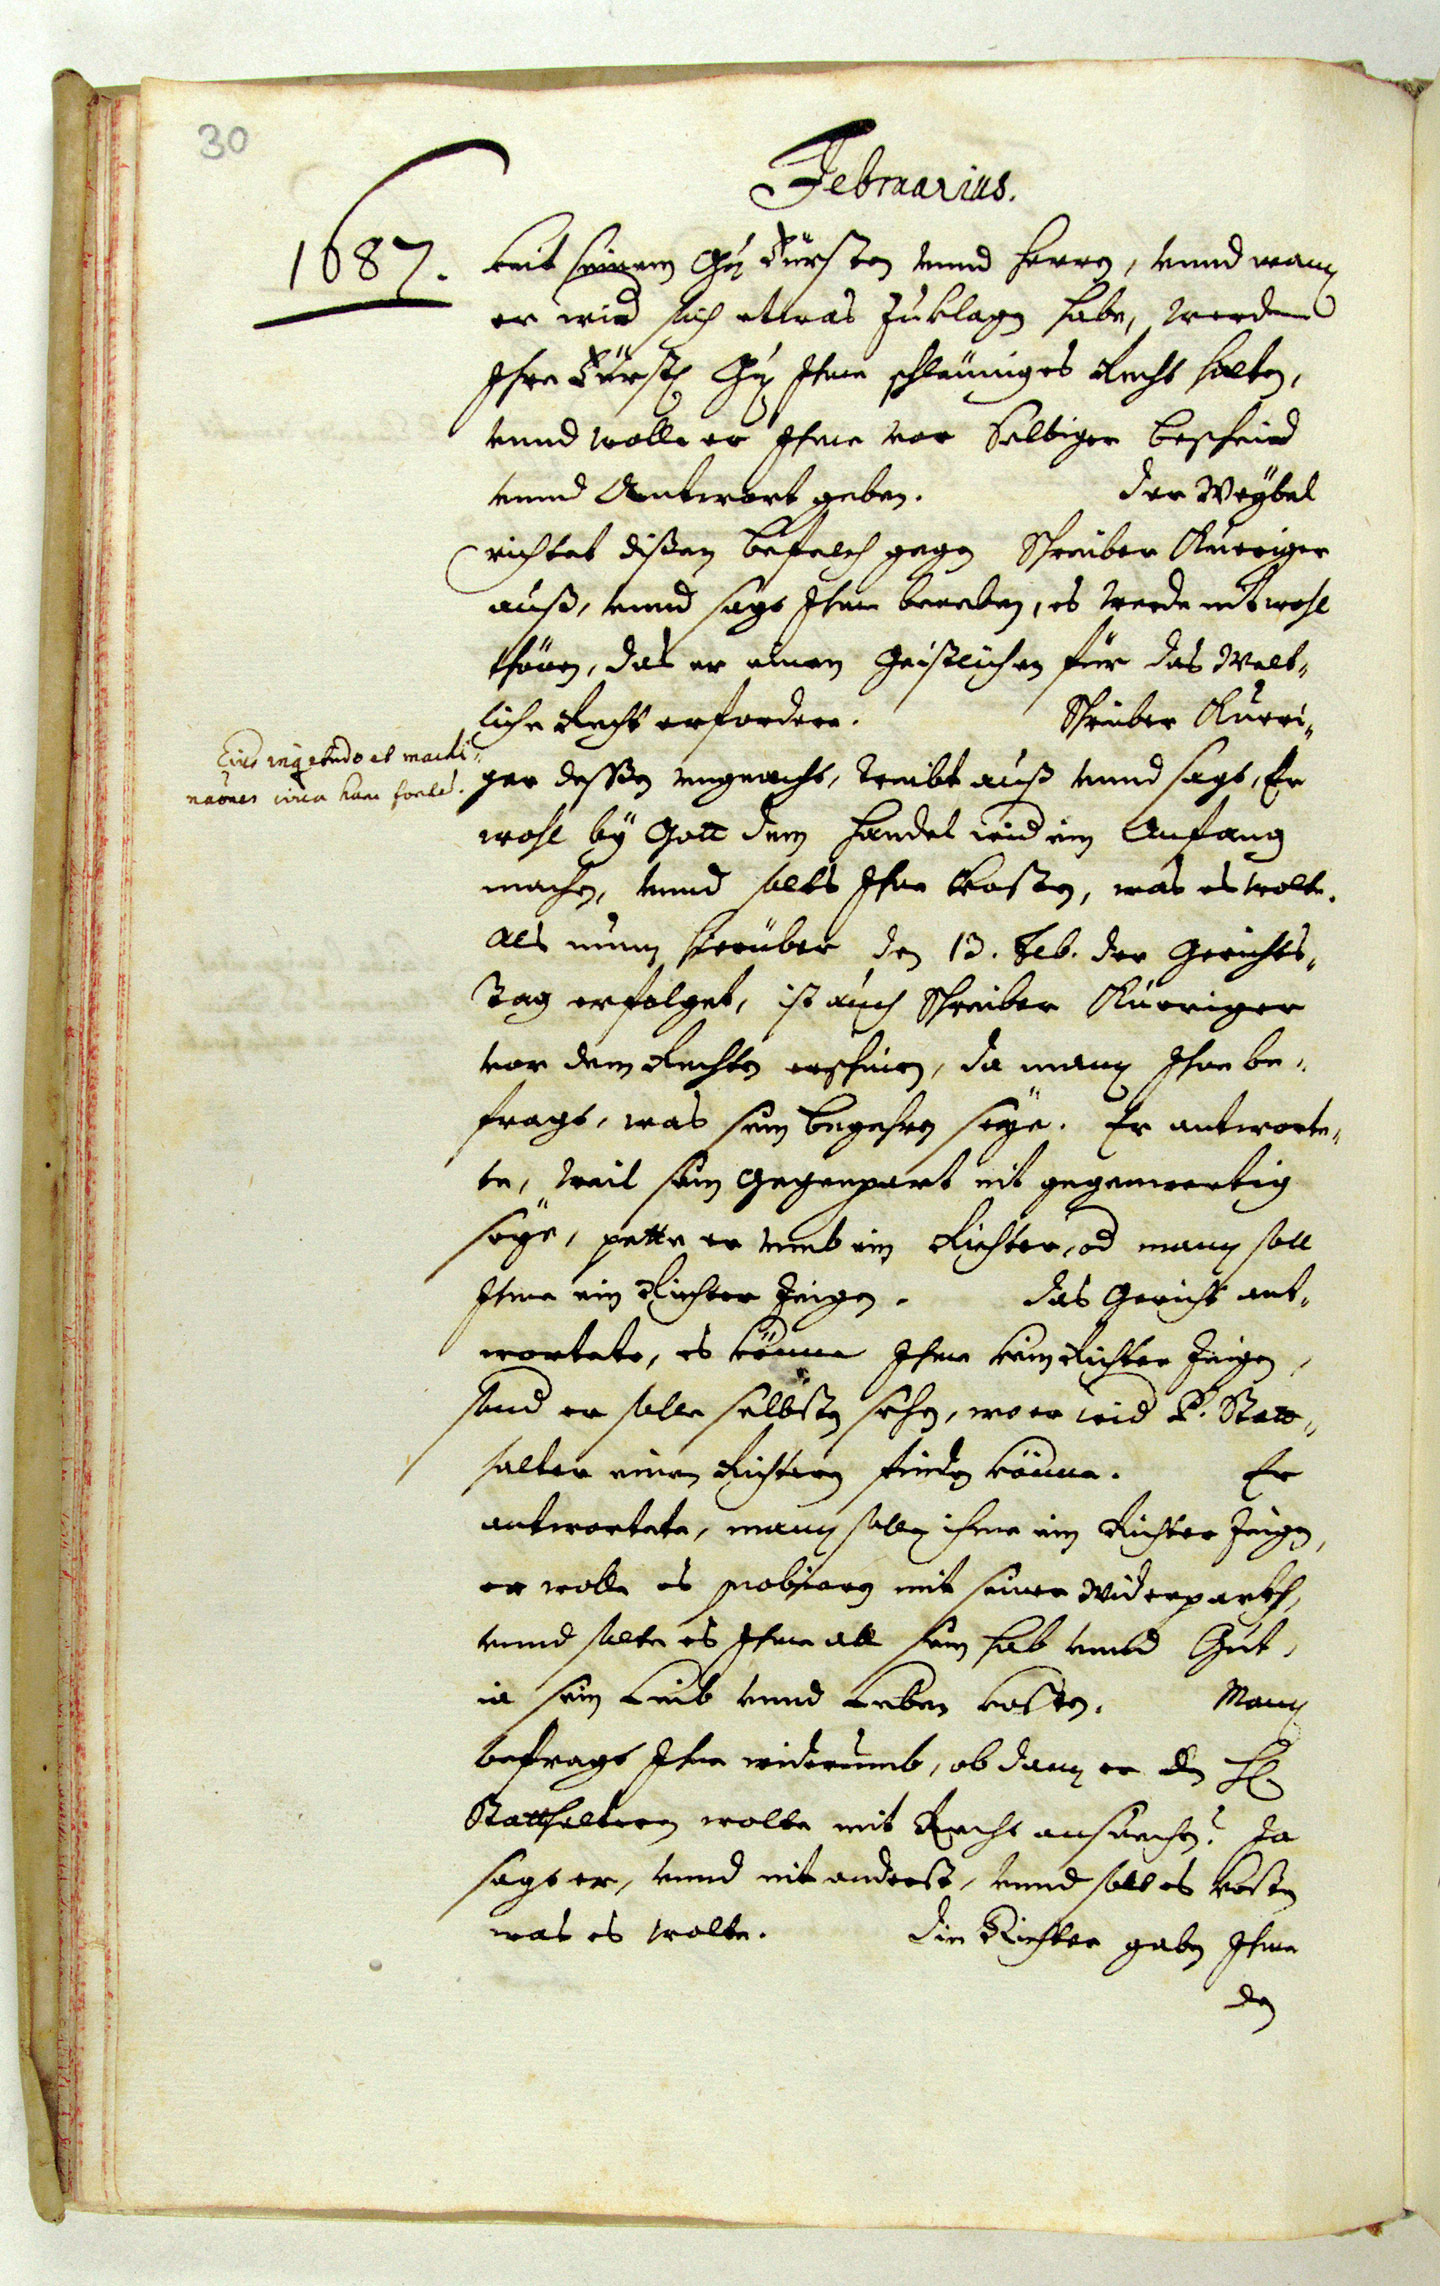 30
Februarius.
1687.
seinem Gn Fürsten vnnd Herren, vnnd wann
er wid sich etwas Zuklagen habe, werden
Ihre Fürstl Gn Ihme schleüniges Recht halten,
vnnd wolle er Ihme vor Selbiger bescheid
vnnd Antwort geben. der Weÿbel
richtet dißen befelch gegen Schreiber Kueriger
auß, vnnd sagt Ihme beneben, es werde nit wohl
thöuen, das er einen Geistlichen für das Welt-
liche Recht erfordere. Schreiber Kueri-
ger dessen vngeacht, treibt auß vnnd sagt, Er
woll bÿ Gott dem handel wid ein Anfang
machen, vnnd solts Ihne kosten, was es wolte.
Als nunn hierüber den 13. Feb. der Gerichts-
Tag erfolget, ist auch Schreiber Kueriger
vor dem Rechten erschinen, da mann Ihne be-
fragt, was sein begehren seÿe. Er antworte-
te, weil sein Gegenpart nit gegenwertig
seÿe, pette er vmb ein Richter, od mann soll
Ihme ein Richter Zeigen. das Gericht ant-
wortete, es könne Ihme kein Richter Zeigen,
sond er solle selbsten sehen, wo er wid P. Statt-
halter einen Richtern finden könne. Er
antwortete, mann solle ihme ein Richter Zeigen,
er wolle es probieren mit seiner Widerparth,
vnnd solte es Ihne all sein hab vnnd Gut,
ia sein Leib vnnd Leben kosten. Mann
befragt Ihne widerumb, ob dann er den H.
Statthalteren wolte mit Recht ansuechen? Ja
sagt er, vnnd nit anderst, vnnd soll es kosten
was es wolte. die Richter gaben Ihme
den